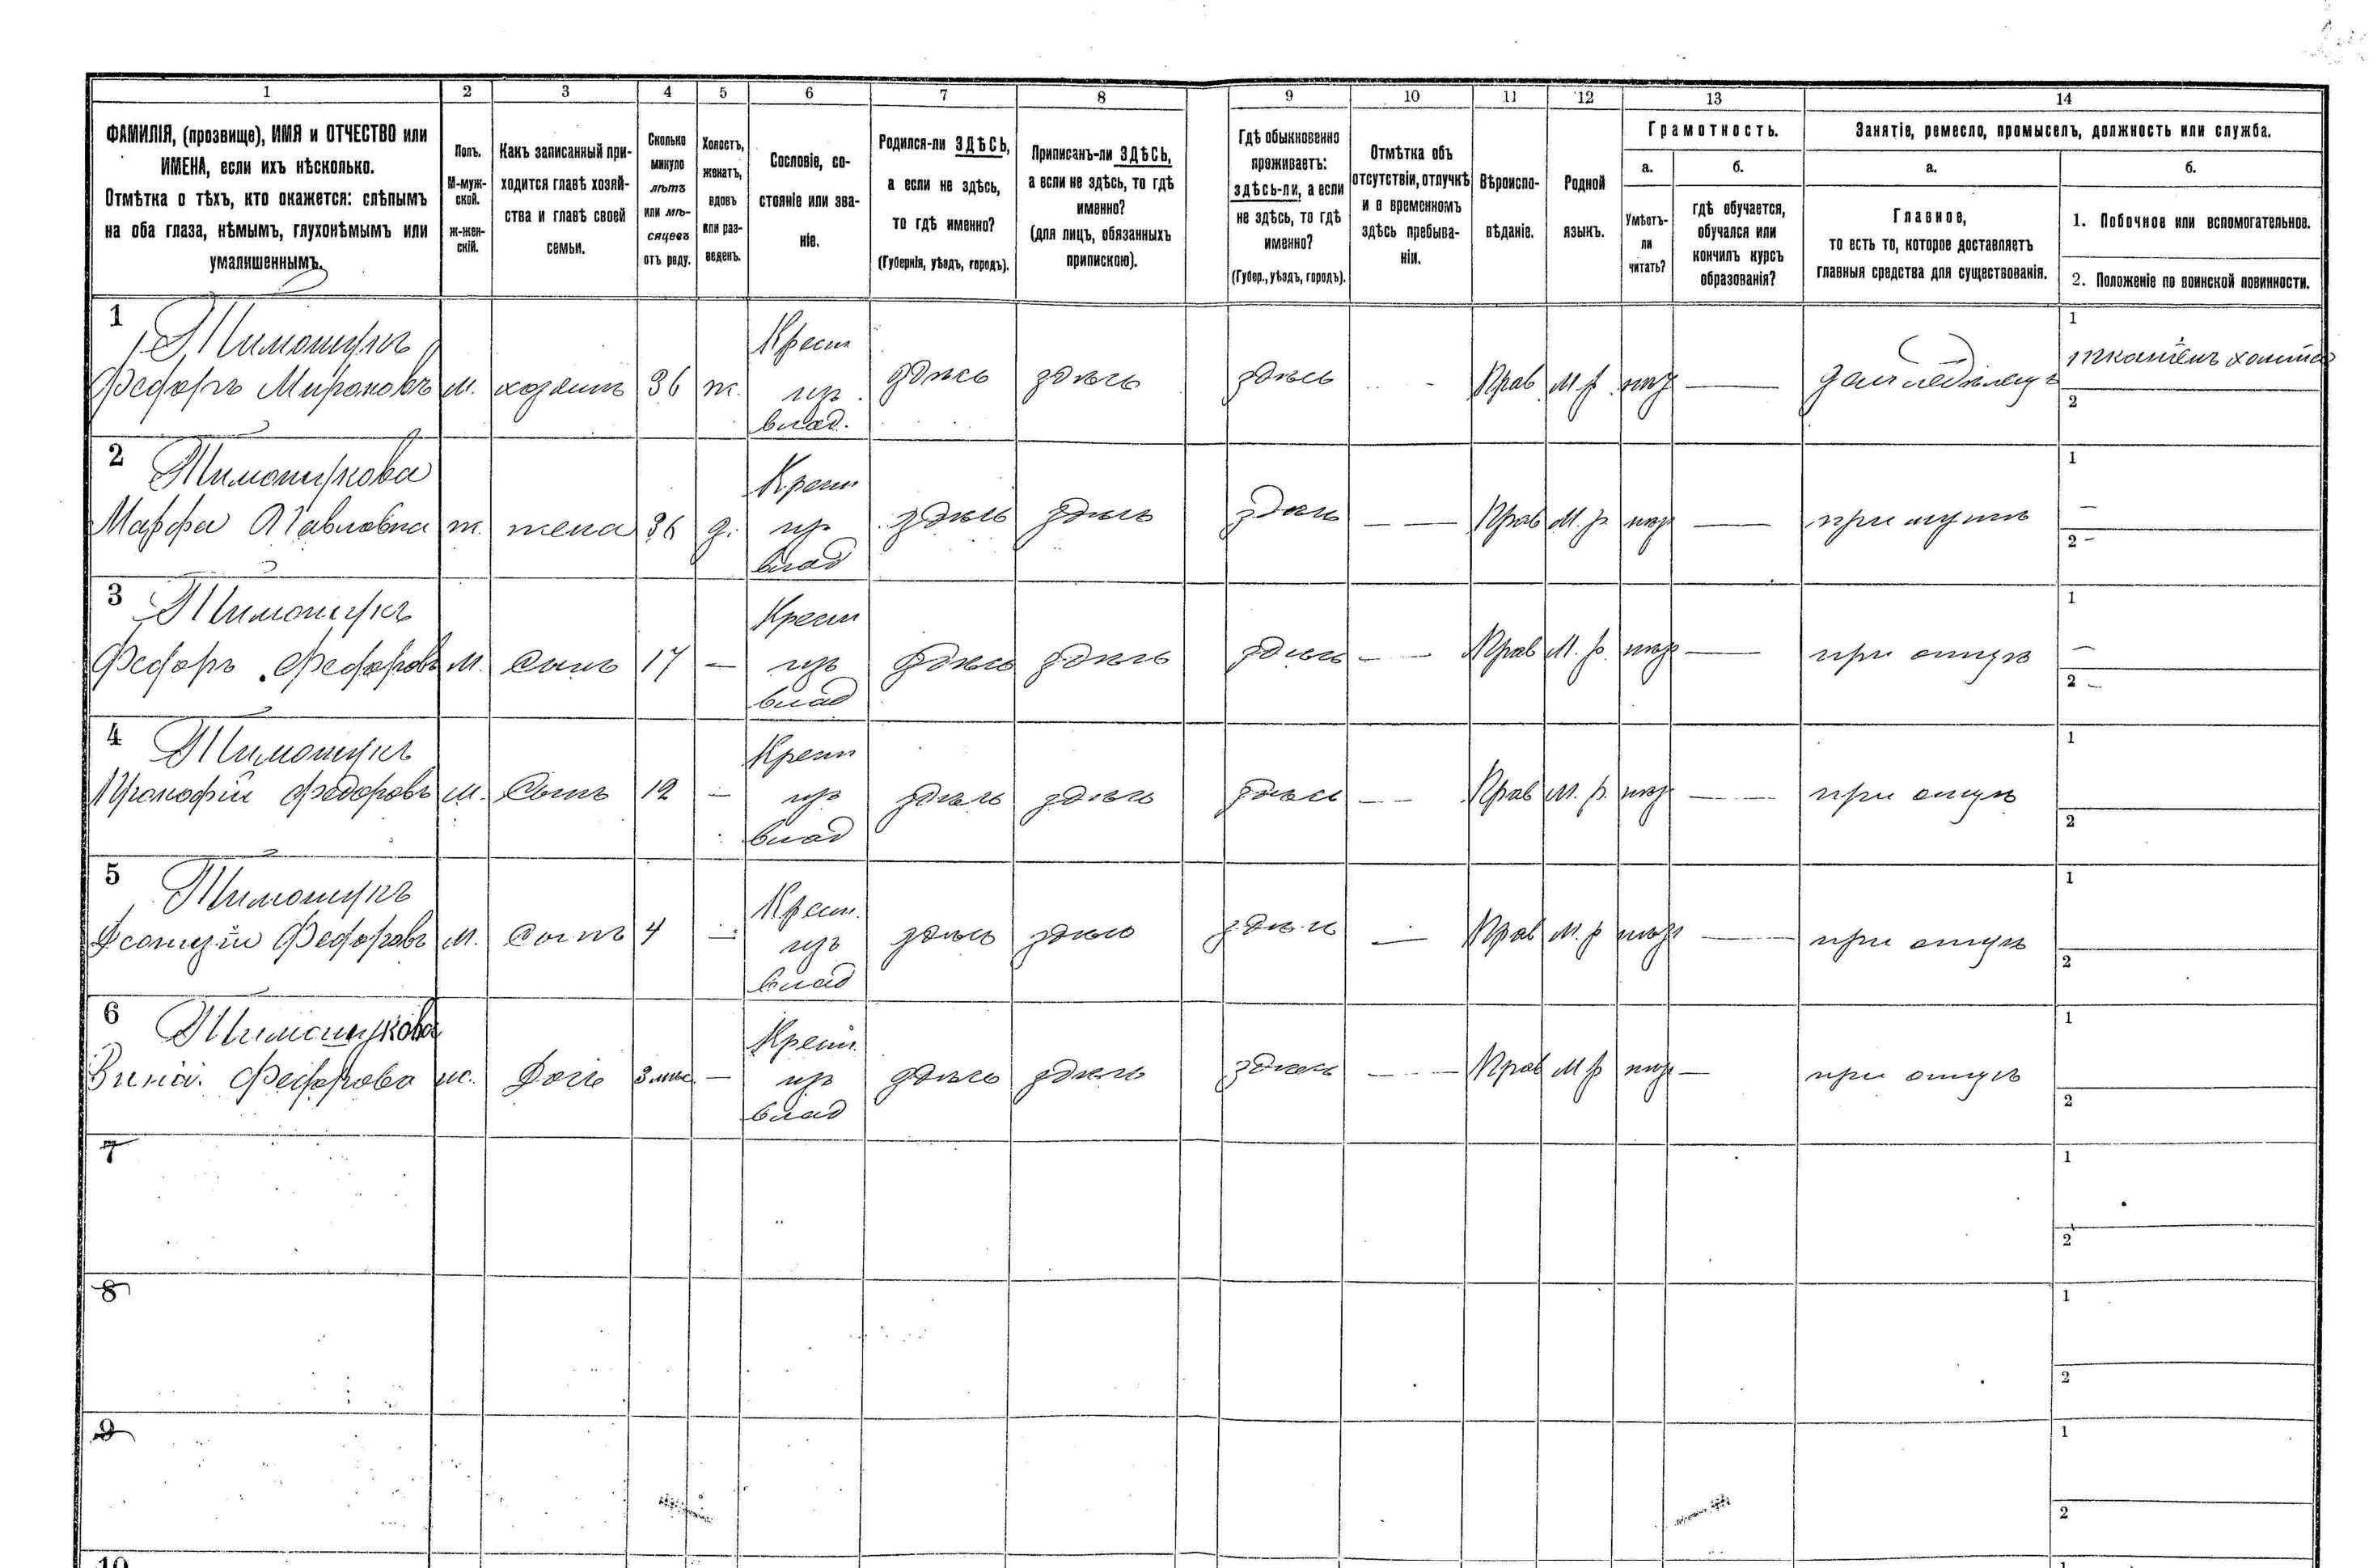 1 2 3 4 5 6 7 8 9 10 11 12 13 14
ФАМИЛІЯ, (прозвище), ИМЯ и ОТЧЕСТВО или
ИМЕНА, если ихъ нѣсколько.
Отмѣтка о тѣхъ, кто окажется: слѣпымъ
на оба глаза, нѣмымъ, глухонѣмымъ или
умалишеннымъ.
Полъ.
М-муж-
ской.
ж-жен-
скій.
Какъ записанный при-
ходится главѣ хозяй-
ства и главѣ своей
семьи.
Сколько
минуло
лѣтъ
или мѣ-
сяцевъ
отъ роду.
Холостъ,
женатъ,
вдовъ
или раз-
веденъ.
Сословіе, со-
стояніе или зва-
ніе.
Родился-ли ЗДѢСЬ,
а если не здѣсь,
то гдѣ именно?
(Губернія, уѣздъ, городъ).
Приписанъ-ли ЗДѢСЬ,
а если не здѣсь, то гдѣ
именно?
(для лицъ, обязанныхъ
припискою).
Гдѣ обыкновенно
проживаетъ:
здѣсь-ли, а если
не здѣсь, то гдѣ
именно?
(Губер., уѣздъ, городъ).
Отмѣтка объ
отсутствіи, отлучкѣ
и о временномъ
здѣсь пребыва-
ніи.
Вѣроиспо-
вѣданіе.
Родной
языкъ.
Грамотность.
а.
Умѣетъ-
ли
читать?
б.
гдѣ обучается,
обучался или
кончилъ курсъ
образованія?
Занятіе, ремесло, промыселъ, должность или служба.
а.
Главное,
то есть то, которое доставляетъ
главныя средства для существованія.
б.
1. Побочное или вспомогательное.
2. Положеніе по воинской повинности.
1 Тимощукъ
Федоръ Мироновъ м. хозяинъ 36 ж. Крест из влад. здѣсь здѣсь здѣсь - Прав М. р. нѣт — земледѣлецъ
1 тканіемъ
2
2 Тимощукова
Марфа Павловна ж. жена 36 з. Крест из влад здѣсь здѣсь здѣсь — — Прав М. р нѣт — при мужѣ
1 —
2 -
3 Тимощукъ
Федоръ Федоровъ М. Сынъ 17 — Крест из влад здѣсь здѣсь здѣсь — — Прав М. р. нѣт — при отцѣ
1 —
2 -
4 Тимощукъ
Прокофій Федоровъ М. Сынъ 12 — Крест из влад здѣсь здѣсь здѣсь — — Прав М. р. нѣт — при отцѣ
1
2
5 Тимощукъ
Федоровъ М. Сынъ 4 — Крест. из влад здѣсь здѣсь здѣсь — Прав М. р нѣт — при отцѣ
1
2
6 Тимощукова
Федорова ж. Дочь 3 мѣс. — Крест из влад здѣсь здѣсь здѣсь — — Прав М р нѣт — при отцѣ
1
2
7
1
2
8
1
2
9
1
2
10
1